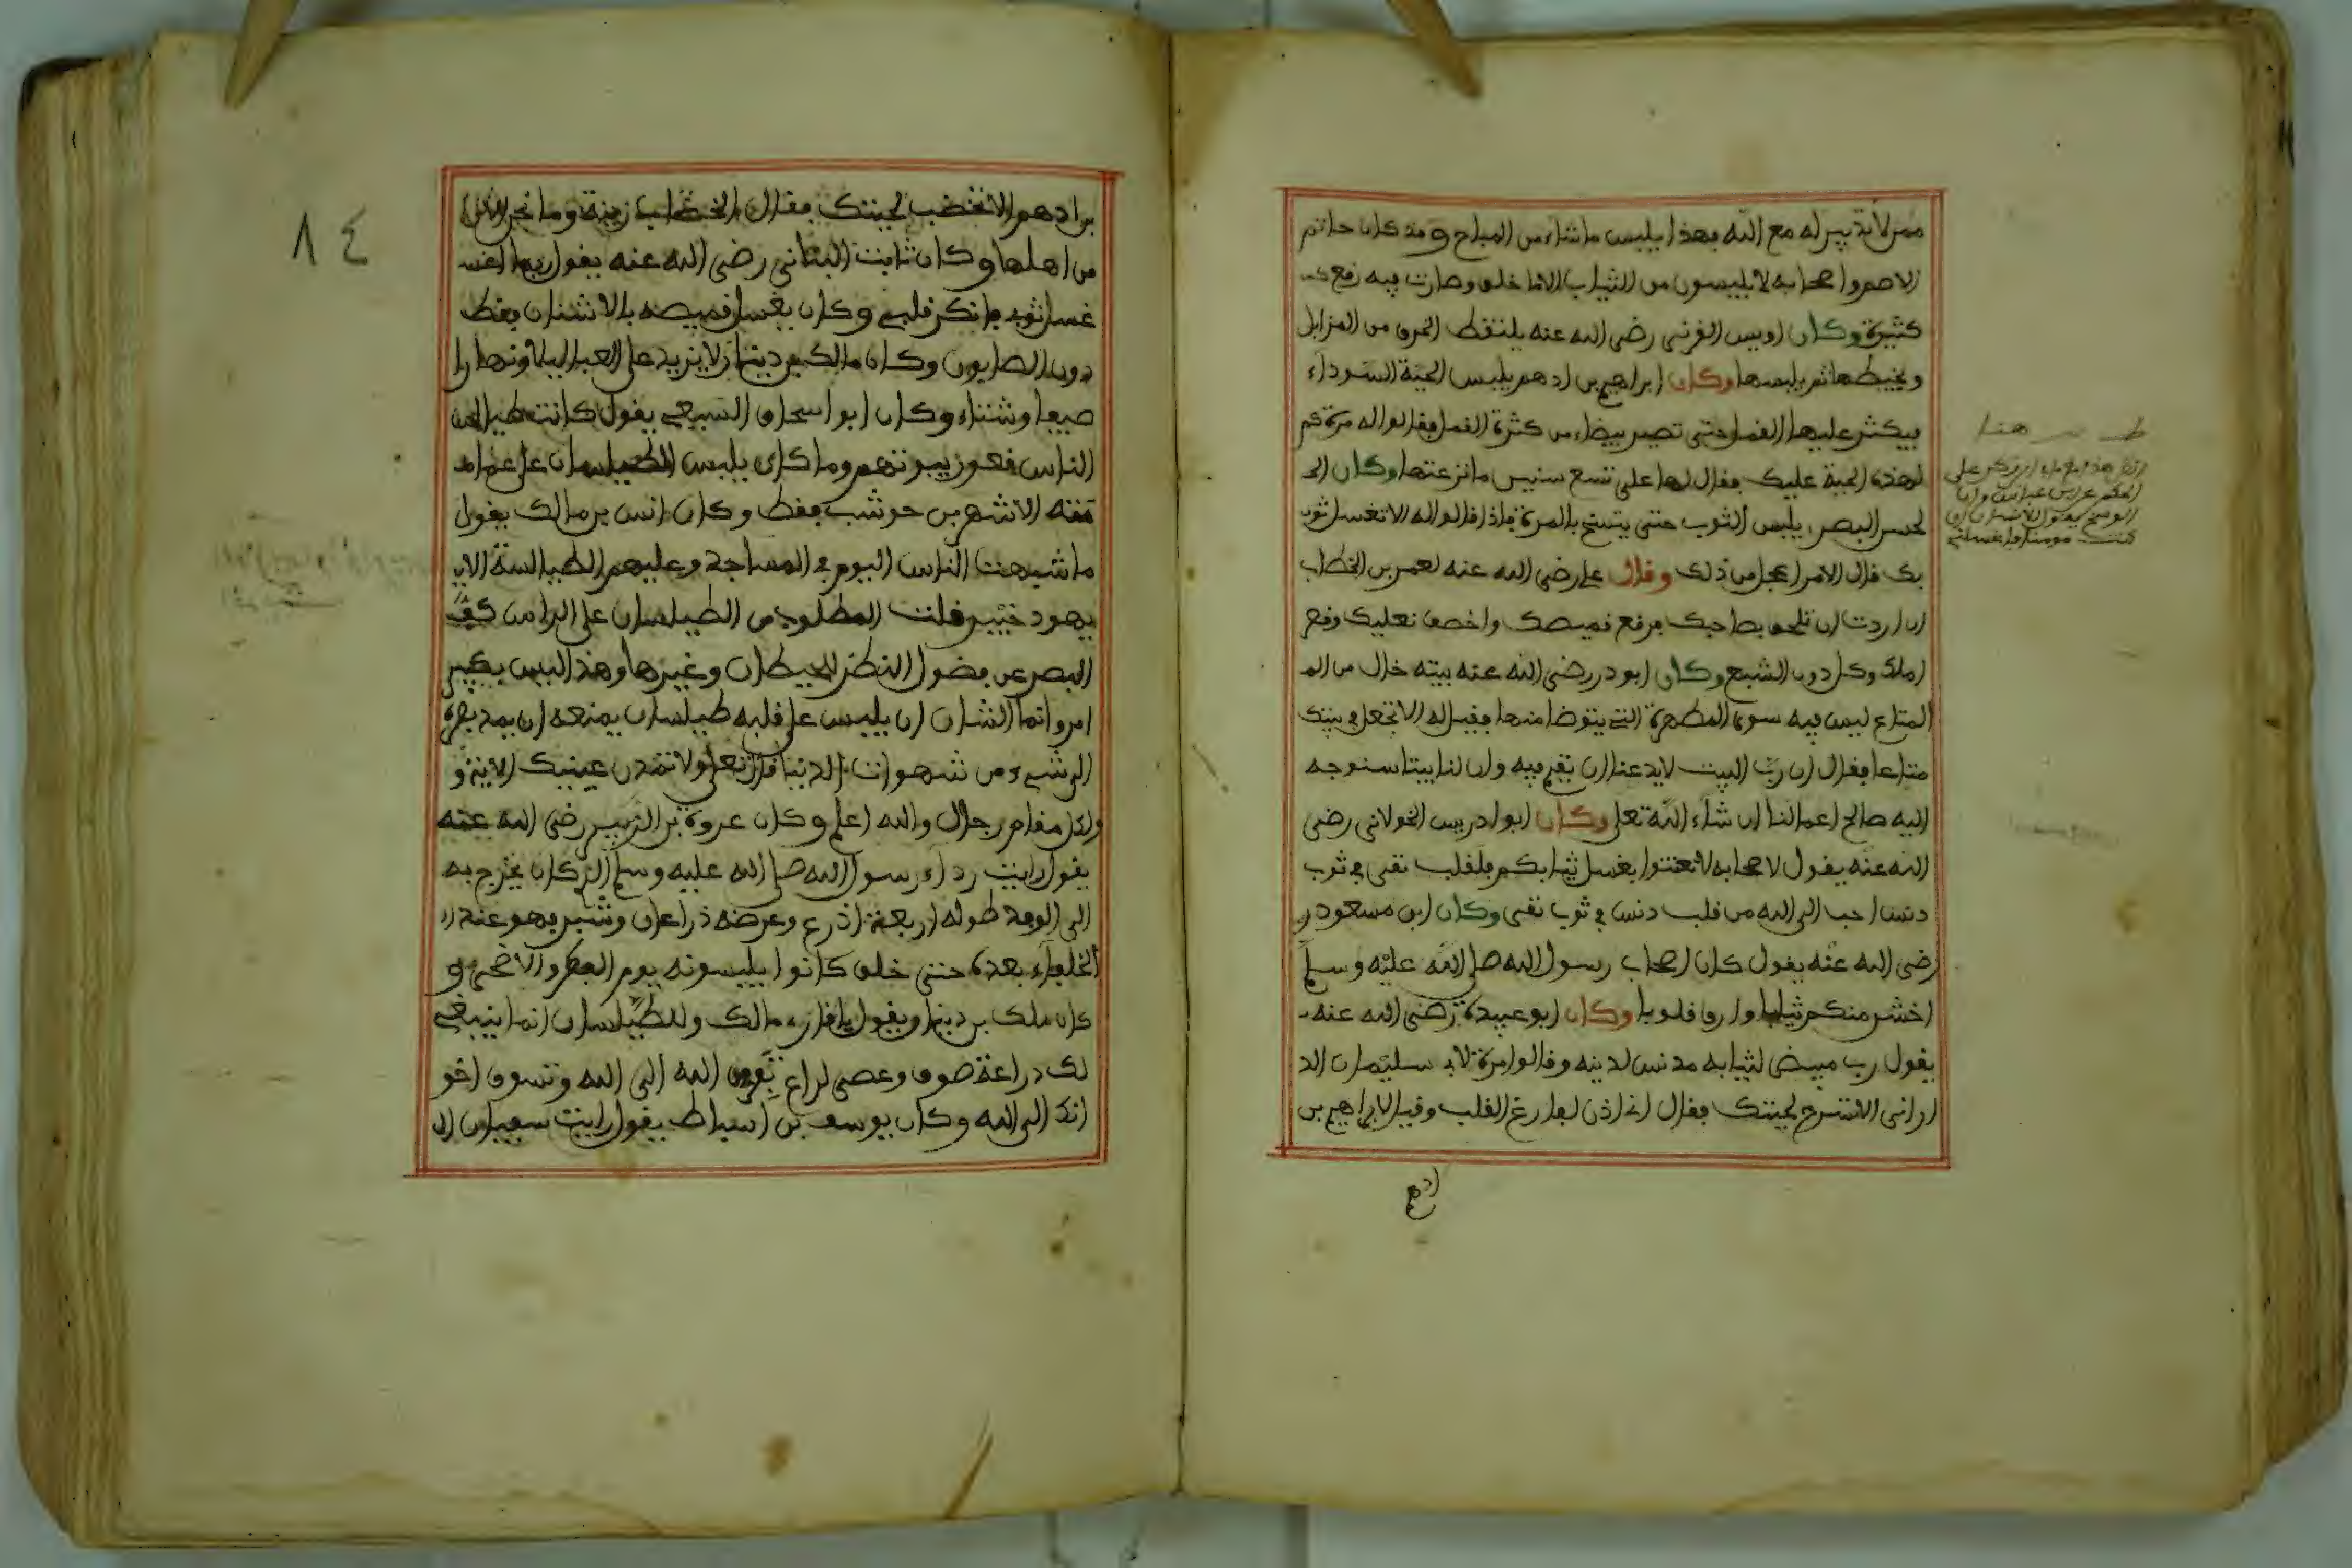 ممن لا تدبير له مع الله فهذا يلبس ما شاء من المباح وقد كان حاتم
الاصم واصحابه لا يلبسون من الثياب الا ما خلق وصارت فيه رقع
كثيرة وكان اويس القرني رضي الله عنه يلتقط الخرق من المزابل
ويخيطها ثم يلبسها وكان ابراهيم بن ادهم يلبس الجبة السوداء
فيكثر عليها القمل حتى تصير بيضاء من كثرة القمل فقالوا له مرة كم
لهذه الجبة عليك فقال لها علي تسع سنين ما نزعتها وكان الـ
لحسن البصري يلبس الثوب حتى يتسخ بالمرة فاذا قالوا له الا تغسل ثو
بك قال الامر اعجل من ذلك وقال علي رضي الله عنه لعمر بن الخطاب
ان اردت ان تلحق بصاحبك فرقع قميصك واخصف نعليك وقصر
املك وكل دون الشبع وكان ابو ذر رضي الله عنه بيته خال من الـ
المتاع ليس فيه سوى المطهرة التي يتوضا منها فقيل له الا تجعل في بيتك
متاعا فقال ان رب البيت لا يدعنا ان نقيم فيه وان لنا بيتا سنوجه
اليه صالح اعمالنا ان شاء الله تعلى وكان ابو ادريس الخولاني رضي
الله عنه يقول لاصحابه لا تعتنوا بغسل ثيابكم فلقلب نقي في ثوب
دنس احب الى الله من قلب دنس في ثوب نقي وكان ابن مسعود ر
رضي الله عنه يقول كان اصحاب رسول الله صلى الله عليه وسلم
اخشن منكم ثيابا وارق قلوبا وكان ابو عبيدة رضي الله عنه
يقول رب مبيض لثيابه مدنس لدينه وقالوا مرة لابي سليمان الد
اراني الا تسرح لحيتك فقال اني اذن لفارغ القلب وقيل لابراهيم بن
ادهم
٨٤
بن ادهم الا تخضب لحيتك فقال الخضاب زينة وما نحن
من اهلها وكان ثابت البناني رضي الله عنه يقول ربما اغسـ
غسل ثوبي فانكر قلبي وكان يغسل قميصه بالاشنان فقط
دون الصابون وكان مالك بن دينار لا يزيد على العبا ليلا ونهارا
صيفا وشتاء وكان ابو اسحاق السبيعي يقول كانت طيالس
الناس قعور بيوتهم وما كان يلبس الطيلسان على عمامـ
مته الا شهر بن حوشب فقط وكان انس بن مالك يقول
ما شبهت الناس اليوم في المساجد وعليهم الطيالسة الا بـ
يهود خيبر قلت المطلوب من الطيلسان على الراس كف
البصر عن فضول النظر للحيطان وغيرها وهذا ليس بكبير
امر وانما الشان ان يلبس على قلبه طيلسان يمنعه ان يمد بصره
الى شيء من شهوات الدنيا قال تعلى ولا تمدن عينيك الاية و
ولكل مقام رجال والله اعلم وكان عروة بن الزبير رضي الله عنه
يقول رايت رداء رسول الله صلى الله عليه وسلم الذي كان يخرج به
الى الوفد طوله اربعة اذرع وعرضه ذراعان وشبر فهو عند ا
الخلفاء بعده حتى خلق كانوا يلبسونه يوم الفطر والاضحى و
كان ملك بن دينار يقول يا قارىء مالك وللطيلسان انما ينبغي
لك دراعة صوف وعصى لراع تفر من الله الى الله وتسوق اخو
انك الى الله وكان يوسف بن اسباط يقول رايت سفيان ال